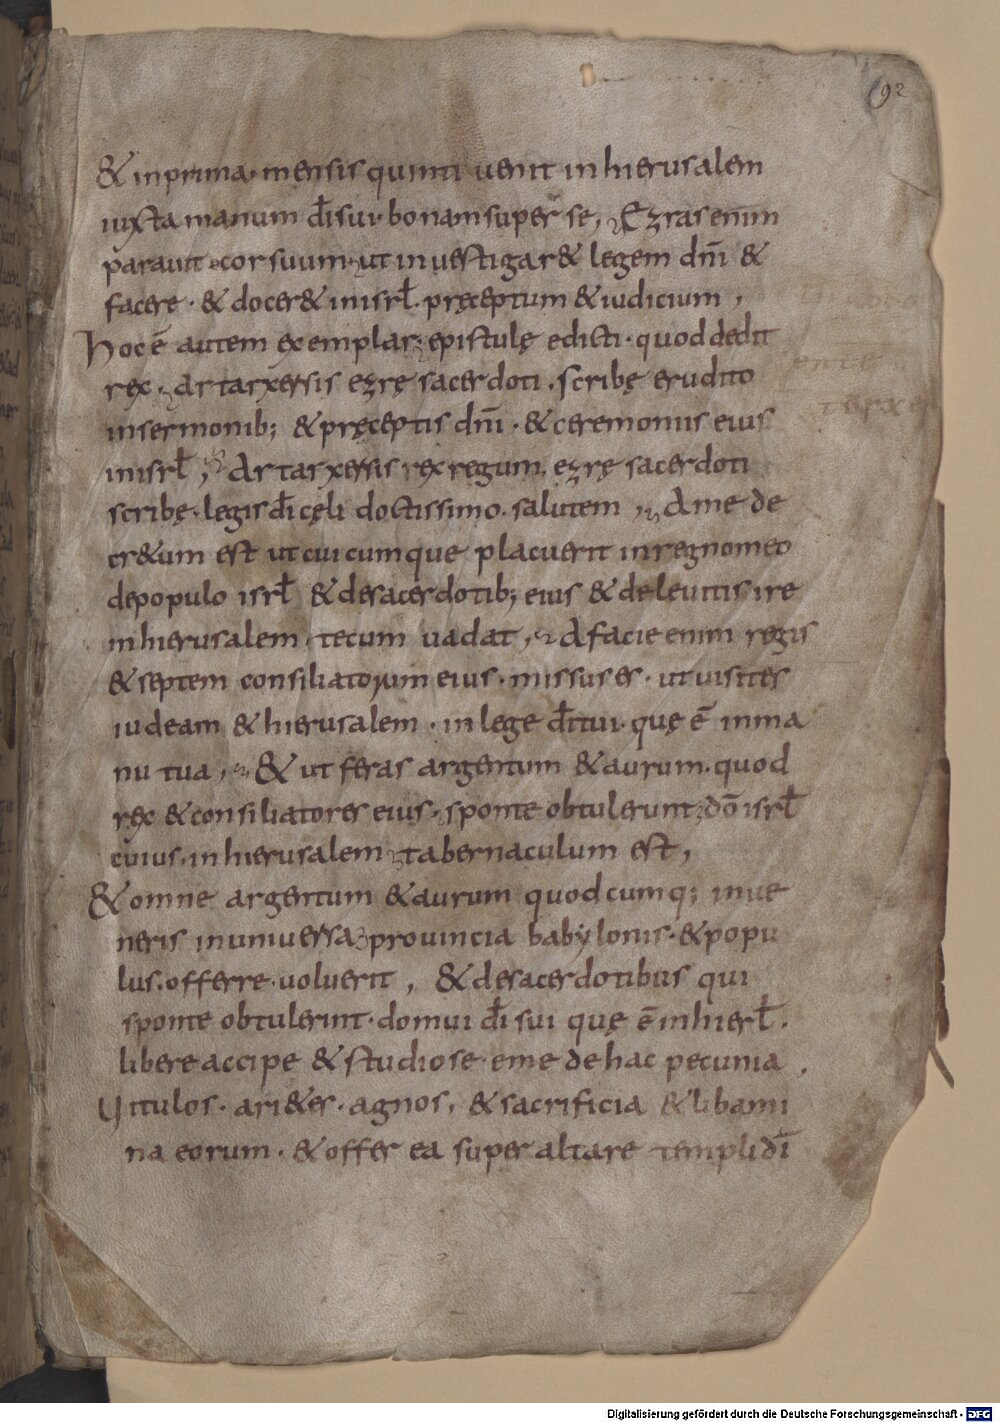 92
& inprima· mensis quinti uenit inhierusalem
iuxta manum d̄i sui· bonam super se, Ezras enim
parauit cor suum· ut inuestigar& legem dn̄i &
facere· & docer& inisrł· pręceptum & iudicium,
Hoc ē autem exemplar epistulę edicti· quod dedit
rex· artarxersis ezrę sacerdoti· scribę erudito
insermonib; & pręceptis dn̄i· & ceremoniis eius
inisrł, Artarxersis rex regum ezrę sacerdoti
scribę· legis d̄i cęli doctissimo· salutem, A me de
cr&um est ut cuicumque placuerit in regno meo
depopulo isrł & desacerdotib; eius & deleuitis ire
inhierusalem tecum uadat, A facie enim regis
& septem consiliatorum eius· missus es· ut uisites
iudeam & hierusalem· in lege d̄i tui· quę ē inma
nu tua, & ut feras argentum & aurum· quod
rex & consiliatores eius· sponte obtulerunt d̄o isrł
cuius· inhierusalem tabernaculum est,
& omne argentum & aurum quodcumq; inue
neris inuniuersa prouincia babylonis· & popu
lus· offerre· uoluerit, & desacerdotibus qui
sponte obtulerint· domui d̄i sui quę ē inhierł·
libere accipe & studiose· eme de hac pecunia,
Vitulos· ari&es· agnos, & sacrificia & libami
na eorum· & offer ea super altare templi d̄i
Digitalisierung gefördert durch die Deutsche Forschungsgemeinschaft - DFG